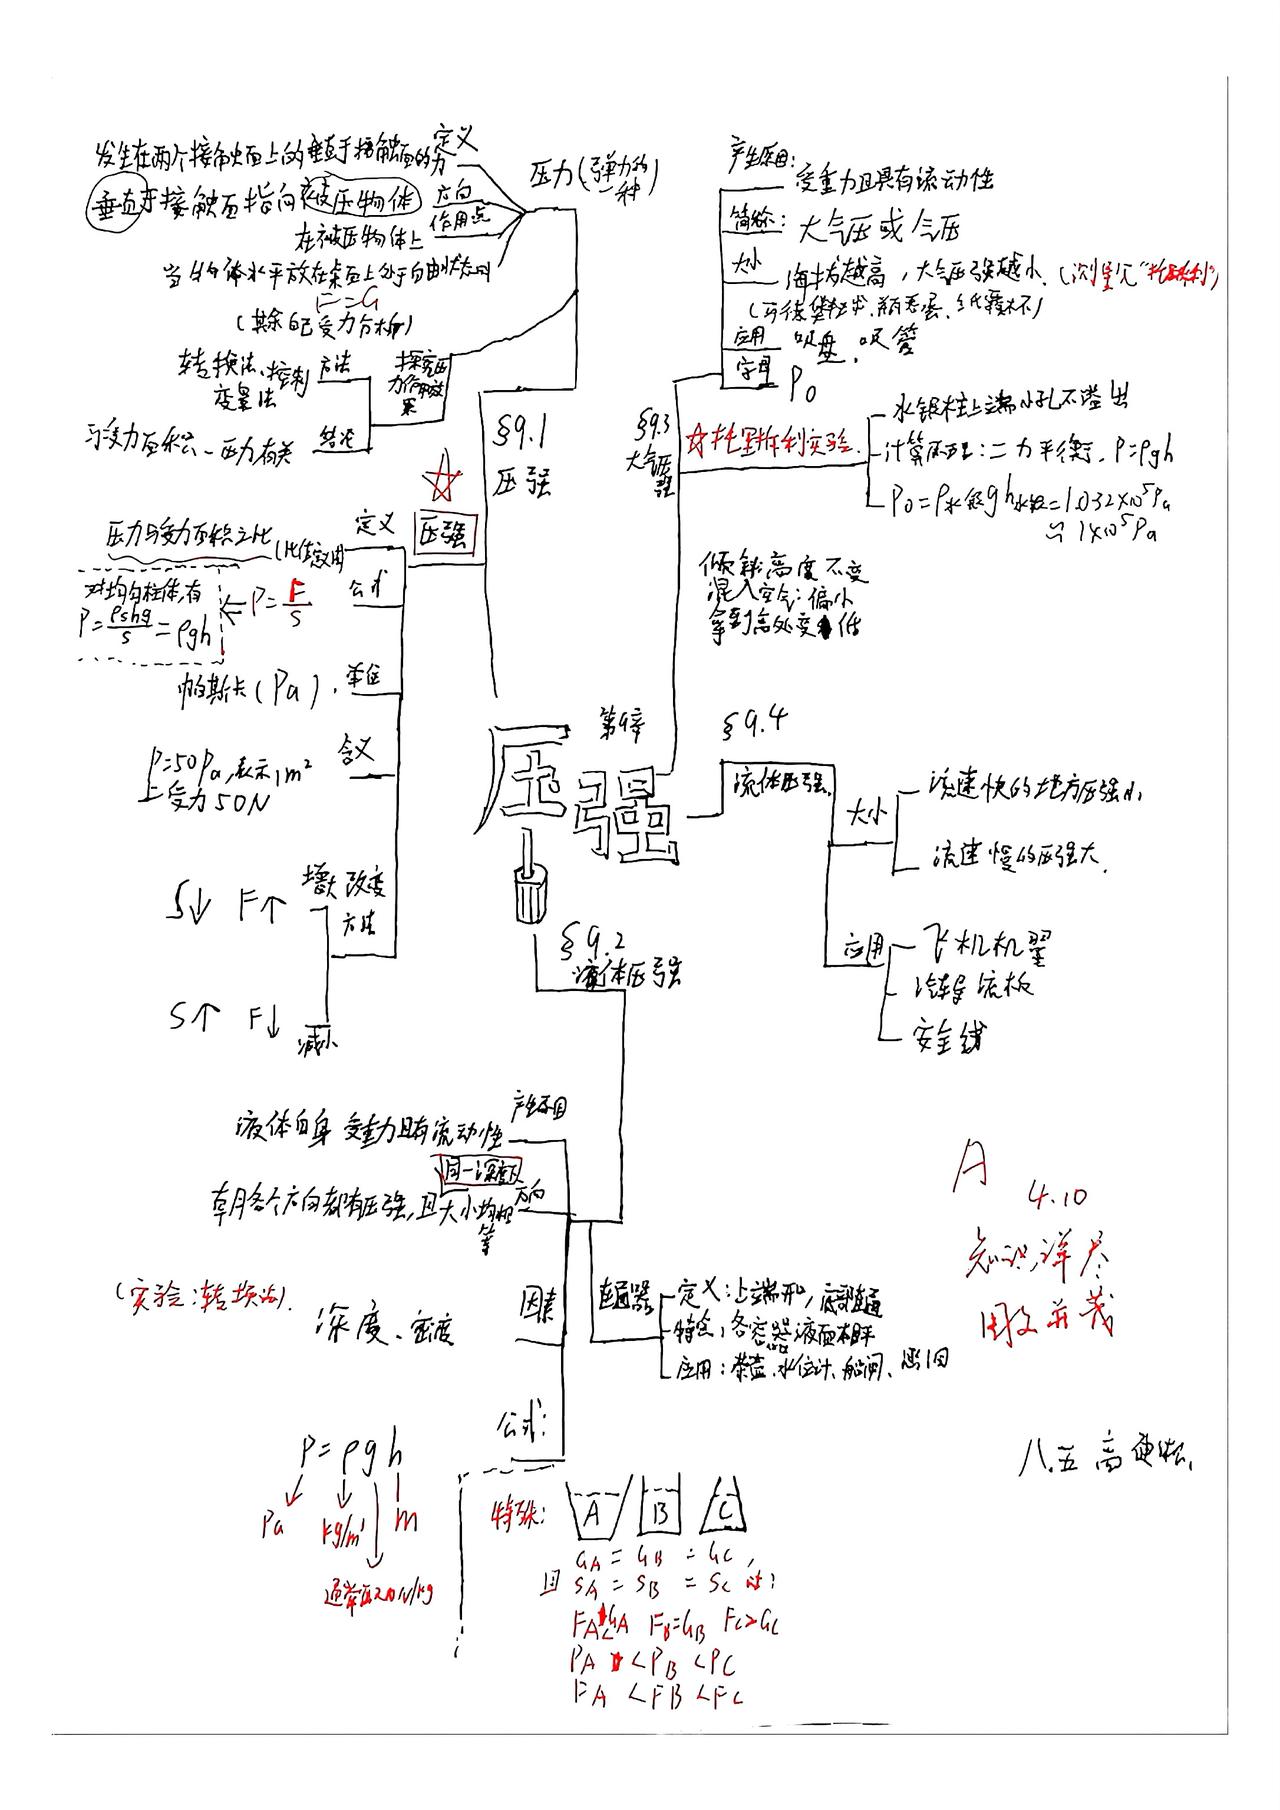 压力(弹力的一种)
定义
发生在两个接触面上的垂直于接触面的力
方向
垂直于接触面指向被压物体
作用点
在被压物体上
当物体水平放在桌面上处于自由状态时
F=G
(其余自己受力分析)
探究压力作用效果
方法
转换法、控制
变量法
结论
与受力面积、压力有关
§9.1
压强
压强
定义
压力与受力面积之比(比值定义)
公式
P=F/S
对均匀柱体,有
P=ρshg/s=ρgh
单位
帕斯卡(Pa).
含义
P=50Pa,表示1m²
上受力50N
改变
方法
增大
S↓ F↑
减小
S↑ F↓
第9章
压强
§9.3
大气压强
产生原因:
受重力且具有流动性
简称:
大气压或气压
大小
海拔越高,大气压强越小.(测量见"托里拆利")
(马德堡半球、瓶吞蛋、纸覆杯)
应用
吸盘、吸管
字母
P₀
☆托里拆利实验.
水银柱上端小孔不溢出
计算原理:二力平衡.P=ρgh
P₀=ρ水银gh水银=1.032×10⁵Pa
≈1×10⁵Pa
倾斜:高度不变
混入空气:偏小
拿到高处变低
§9.4
流体压强.
大小
流速快的地方压强小
流速慢的压强大.
应用
飞机机翼
汽车导流板
安全线
§9.2
液体压强
产生原因
液体自身受重力且有流动性
方向
同一深度
朝各个方向都有压强,且大小均相等
因素
深度、密度
(实验:转换法).
连通器
定义:上端开口,底部连通
特点:各容器液面相平
应用:茶壶、水位计、船闸、
公式:
P=ρgh
Pa
kg/m³
m
通常取10N/kg
特殊:
A B C
GA=GB=GC,
且SA=SB=SC时:
FA<GA FB=GB FC>GC
PA<PB<PC
FA<FB<FC
A
4.10
知识详尽
图文并茂
八.五 高